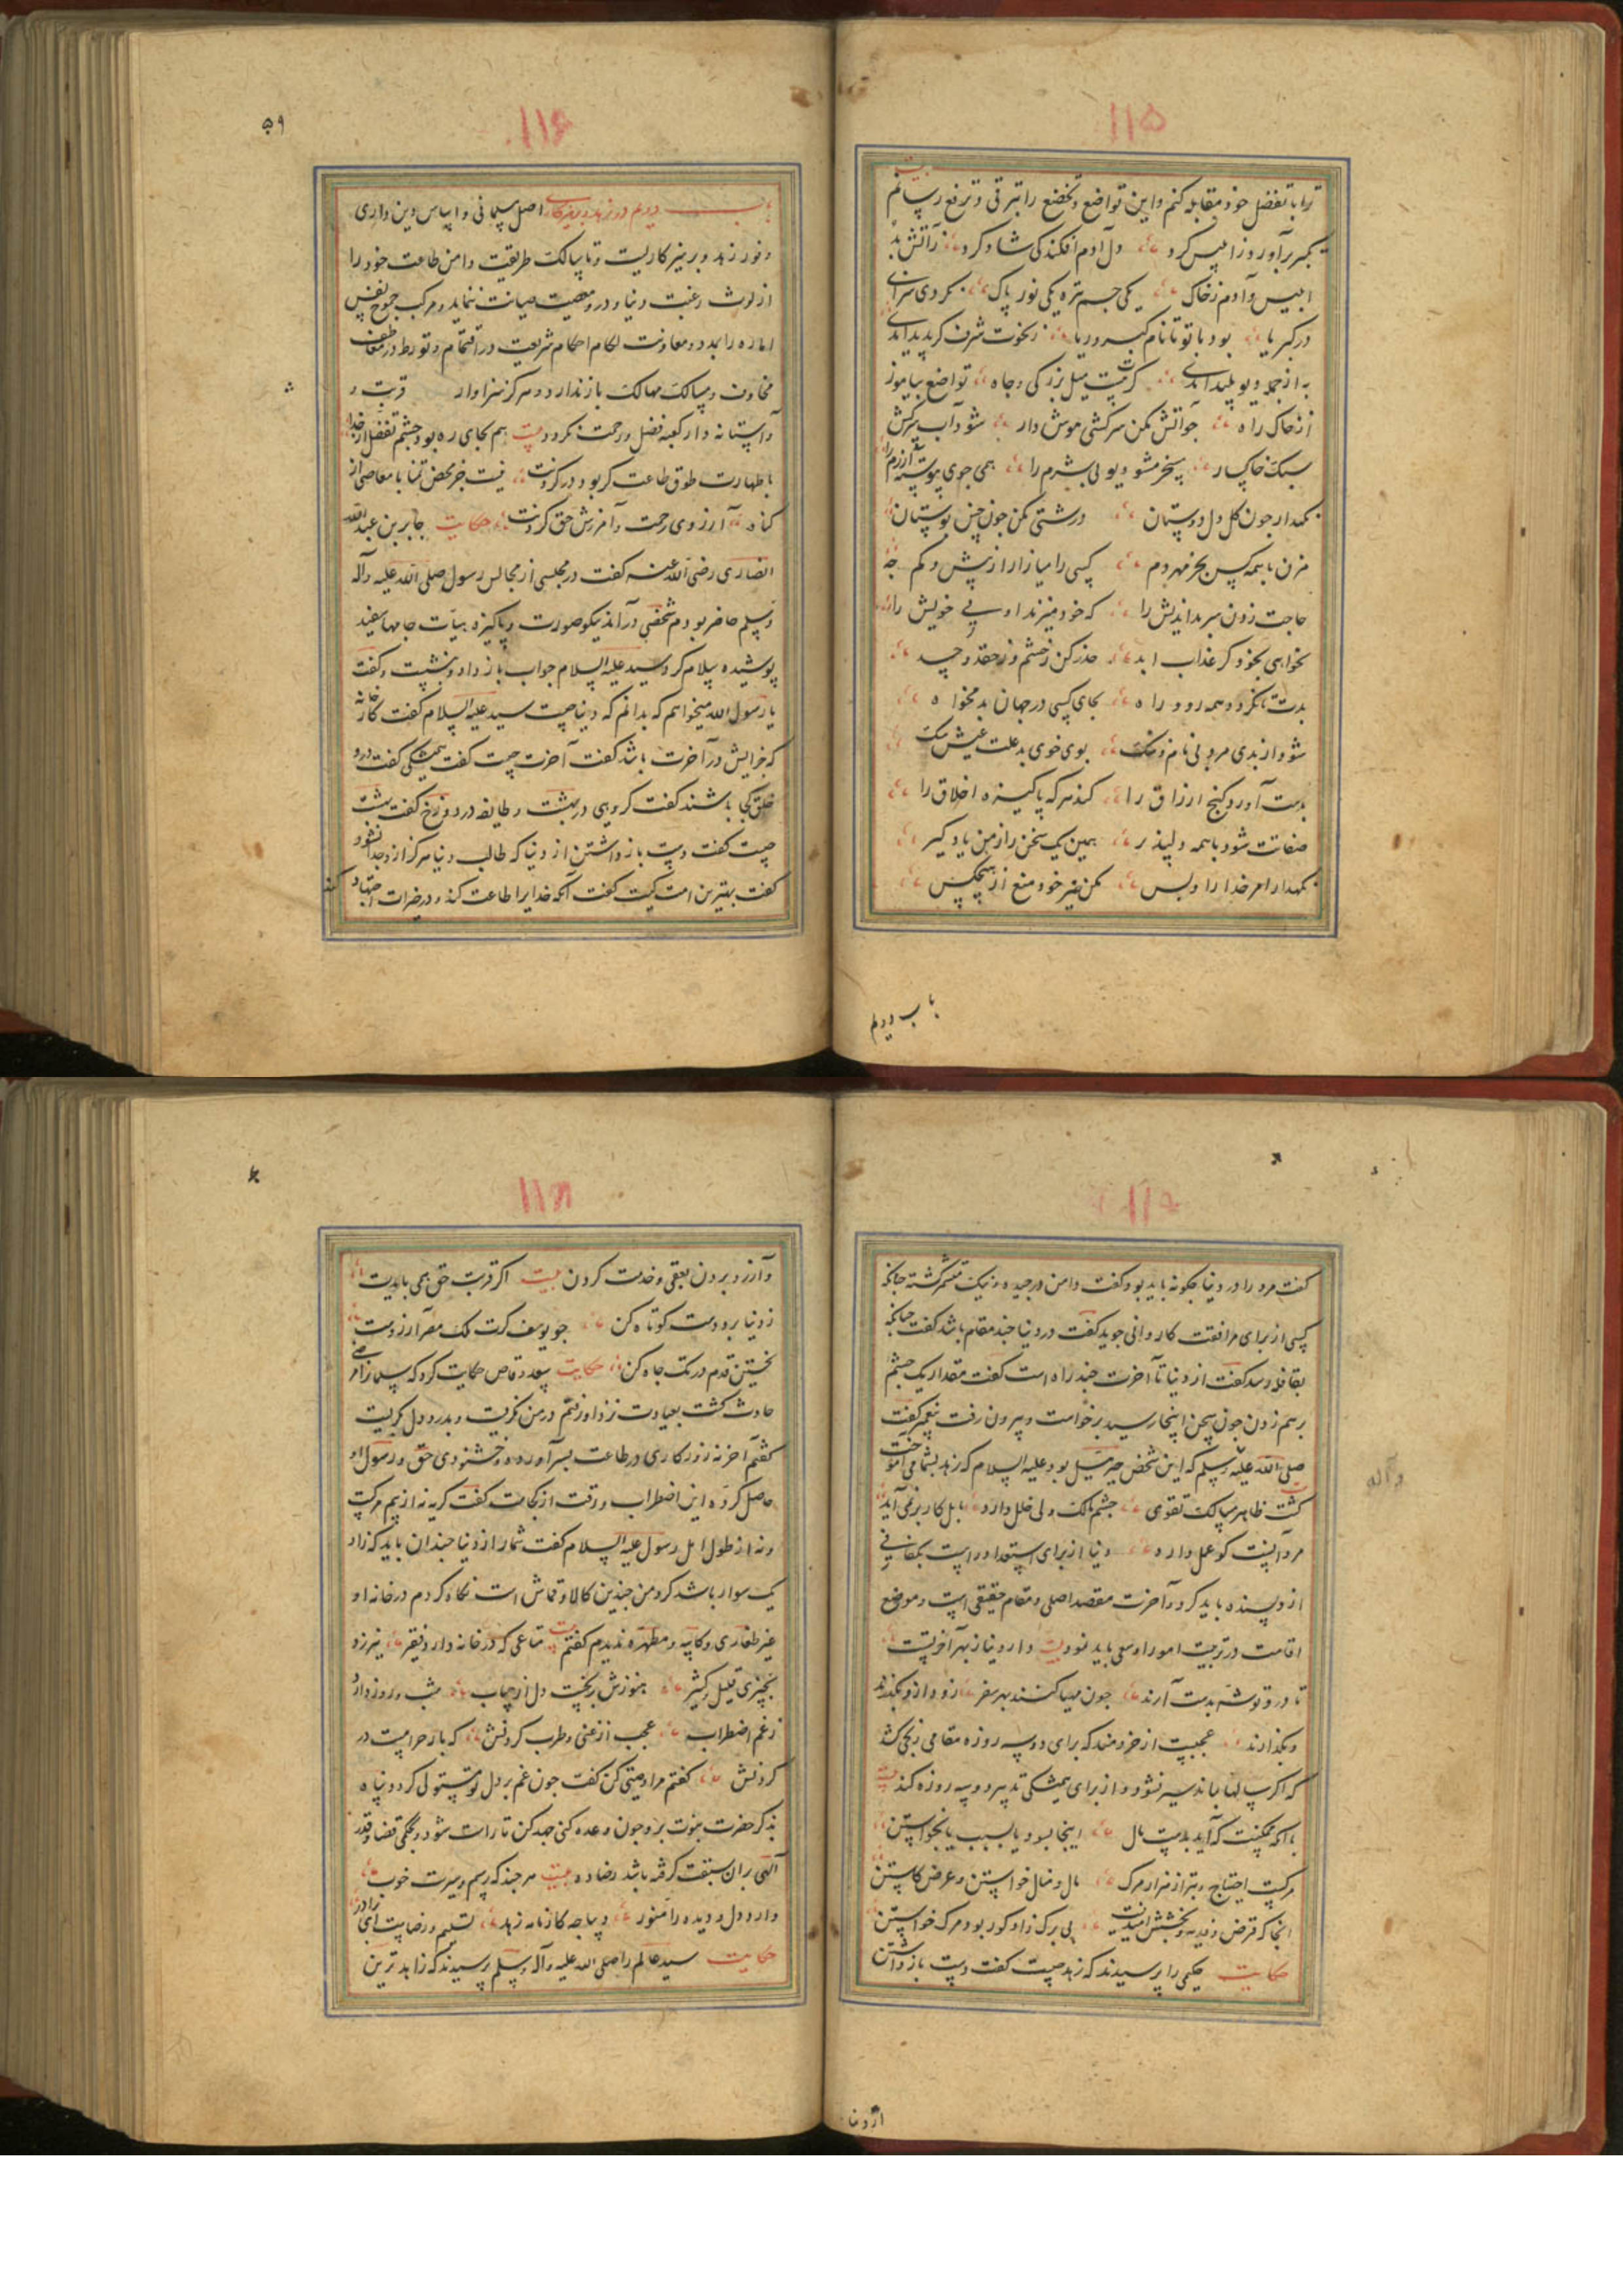 ۱۱۵
بیت
ترا با تفضل خود مقابله کنم و این تواضع و تخضع را بترقی و ترفع رسانم
تکبر برآورد ز ابلیس کرد دل آدم افکندکی شاد کرد ز آتش بد
ابلیس و آدم ز خاک یکی جسم تیره یکی نور پاک نکردی سزای
در کبریا بود با تو تا نام کبر و ریا ز نخوت شرف کر پدید آمدی
به از جمله دیو پلید آمدی کرت نیست میل بزرکی و جاه تواضع بیاموز
از خاک راه جو آتش مکن سرکشی هوش دار مشو آب سرکش
سبک خاکسار مسخر مشو دیو بی شرم را همی جوی پیوسته آزرم را
نکهدار جون کل دل دوستان درشتی مکن جون خس بوستان
مزن با همه کس بجز مهر دم کسی را میازار از بیش و کم جه
حاجت زدن سر بداندیش را که خود میزند او سر خویش را
نخواهی بخود کر عذاب ابد حذر کن ز خشم و ز حقد و حسد
بدت تا نکردد همه رود راه بجای کسی در جهان بد مخواه
شود از بدی مرد بی نام و ننک بود خوی بد علت عیش تنک
بدست آورد کنج ارزاق را کند هر که پاکیزه اخلاق را
صفاتت شود با همه دلپذیر همین یک سخن را ز من یاد کیر
نکهدار امر خدا را و بس مکن خیر خود منع از هیچکس
باب دویم
۱۱۶
۵۹
باب دویم در زهد و پرهیزکاری اصل مسلمانی و اساس دین داری
وفور زهد و پرهیزکاریست و تا سالک طریقت دامن طاعت خود را
از لوث رغبت دنیا و درو معصیت صیانت ننماید و مرکب جموح نفس
اماره را بمدد و معاونت لکام احکام شریعت در اقتحام و تورط در مخاطف
مخاوف و مسالک مهالک باز ندارد هرکز سزاوار قربت و
آستانه دار کعبه فضل و رحمت نکردد بیت هم بجای ره بود چشم تفضل از خدا
با طهارت طوق طاعت کر بود در کردنت نیست جز محض تمنا با معاصی از
کناه آرزوی رحمت و آمرزش حق کردنت حکایت جابر بن عبدالله
انصاری رضی الله عنه کفت در مجلسی از مجالس رسول صلی الله علیه وآله
وسلم حاضر بودم شخصی درآمد نیکو صورت و پاکیزه هیأت جامهای سفید
پوشیده سلام کرد سید علیه السلام جواب باز داد و بنشست و کفت
یا رسول الله میخواهم که بدانم که دنیا چیست سید علیه السلام کفت کارخانه
که جزایش در آخرت باشد کفت آخرت چیست کفت همیشکی کفت درو
خلق کجا باشند کفت کروهی در بهشت و طایفه در دوزخ کفت بهشت
چیست کفت دست باز داشتن از دنیا که طالب دنیا هرکز ازو جدا نشود
کفت بهترین امت کیست کفت آنکه خدایرا طاعت کند و در خیرات اجتهاد کند
۱۱۷
کفت مرد را در دنیا چکونه باید بود کفت دامن درچیده و نیک مشمر کشته جنانکه
کسی از برای مرافقت کاروانی جوید کفت در دنیا چند مقام باشد کفت چنانکه
بقافله رسد کفت از دنیا تا آخرت چند راه است کفت مقدار یک چشم
بر هم زدن جون سخن اینجا رسید برخواست و بیرون رفت پیغمبر کفت
صلی الله علیه وسلم که این شخص جبرئیل بود علیه السلام که زهد بشما می آموخت
وآله
کشت ظاهر سالک تقوی چشم مالک ولی خلل دارد اهل کار نمی آید
مرد آنست کو عمل دارد دنیا از برای استعداد راست بکفافی
از و بسنده باید کرد و آخرت مقصد اصلی و مقام حقیقی است و موضع
اقامت در تربیت امور او سعی باید نمود بیت دار دنیا ز بهر آخرتست
تا درو توشه بدست آرند جون مهیا کنند بهر سفر زود ازو بکذرند
و بکذارند عجبست از خردمند که برای دو سه روزه مقامی رنجی کشد
که اکر سالها بماند سیر نشود و از برای همیشکی تدبیر دو سه روزه کند بیت
با آنکه ممکنست که آید بدست مال اینجا بسود یا بسبب یا بخواستن
مرکیست احتیاج و بتر از هزار مرک مال و منال خواستن و عرض کاستن
آنجا که قرض و هدیه و بخشش امید نیست بی برک زاد کور بود مرک خواستن
حکایت حکیمی را پرسیدند که زهد چیست کفت دست باز داشتن
از دنیا
۱۱۸
و آرزو بردن بعقبی و خدمت کردن بیت اکر قربت حق همی بایدت
ز دنیا برو دست کوتاه کن جو یوسف کرت ملک مصر آرزوست
نخستین قدم در تک چاه کن حکایت سعد وقاص حکایت کرد که سلمان را مرضی
حادث کشت بعیادت نزد او رفتم در من نکریست و بدرد دل بکریست
کفتم آخر نه روزکاری در طاعت بسر آورده و خشنودی حق و رسول او
حاصل کرده این اضطراب و رقت از کجاست کفت کریه نه از بیم مرکست
و نه از طول امل رسول علیه السلام کفت شما را از دنیا چندان باید که زاد
یک سوار باشد کرد من چندین کالا و قماش است نکاه کردم در خانه او
غیر طغاری و کاسه و مطهره ندیدم کفتم بیت متاعی که در خانه دارد فقیر نیرزد
بچیزی قلیل و کثیر هنوزش بریخت دل از حساب شب و روز دارد
ز غم اضطراب عجب از غنی و طرب کردنش که بار حرامیست در
کردنش کفتم مرا وصیتی کن کفت جون غم بر دل تو مستولی کردد پناه
بذکر حضرت نبوت بر و جون وعده کنی جهد کن تا راست شود و بحکمی قضا و قدر
الهی بران سبقت کرفته باشد رضا ده بیت هر چند که رسم و سیرت خوب
دارد دل و دیده را منور دیباجه کارنامه زهد تسلیم و رضاست ای برادر
حکایت سید عالم را صلی الله علیه وآله وسلم پرسیدند که زاهد ترین